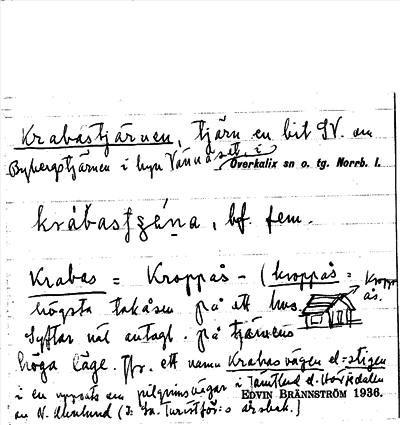 Krabastjärnen, tjärn en bit SV. om
Bybergstjärnen i byn Vännäset, i
Överkalix sn o. tg. Norrb. l.
bf. fem.
Krabas = Kroppås- (kroppås =
högsta takåsen på ett hus.
Kropp-
ås.
Syftar väl antagl. på tjärnens
höga läge. Jfr. ett namn Krabasvägen el. -stigen
i en uppsats om pilgrimsvägar i Jämtland o. Härjedalen
EDVIN BRÄNNSTRÖM 1936.
av N. (i Sv. Turistför:s årsbok.)